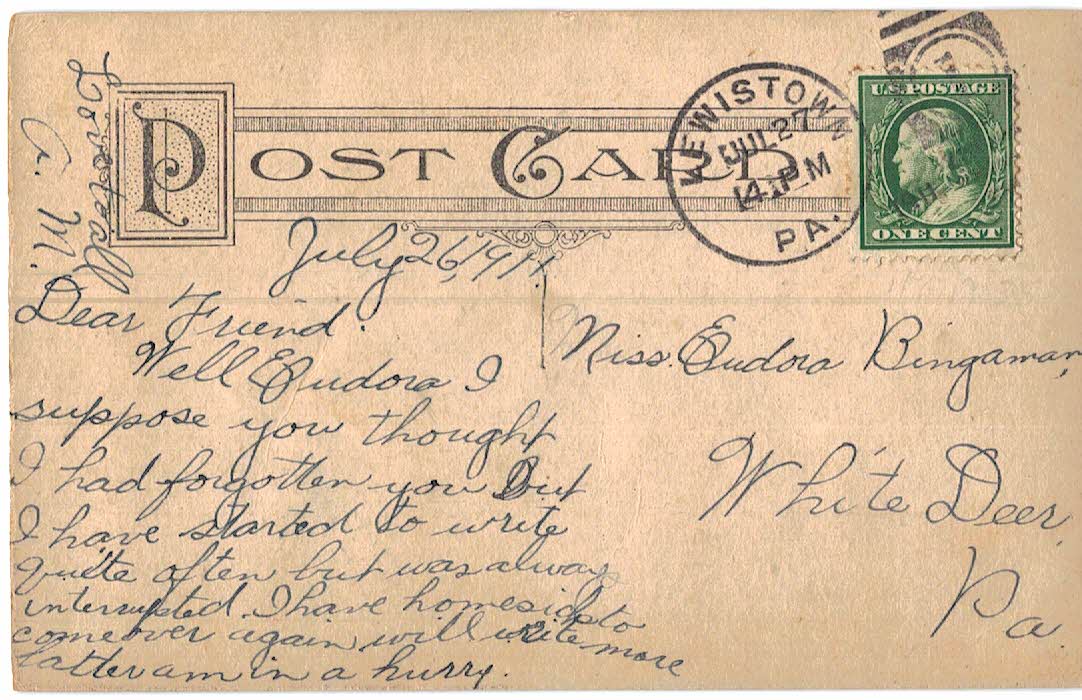 POST CARD
LEWISTOWN
JUL 27
4 PM
PA.
U.S. POSTAGE
ONE CENT
July 26, 1911.
Dear Friend.
Well Eudora I
suppose you thought
I had forgotten you But
I have started to write
quite often but was always
interrupted. I have homesick to
come over again will write more
latter am in a hurry.
Love to all
M.
Miss. Eudora Bingaman,
White Deer,
Pa